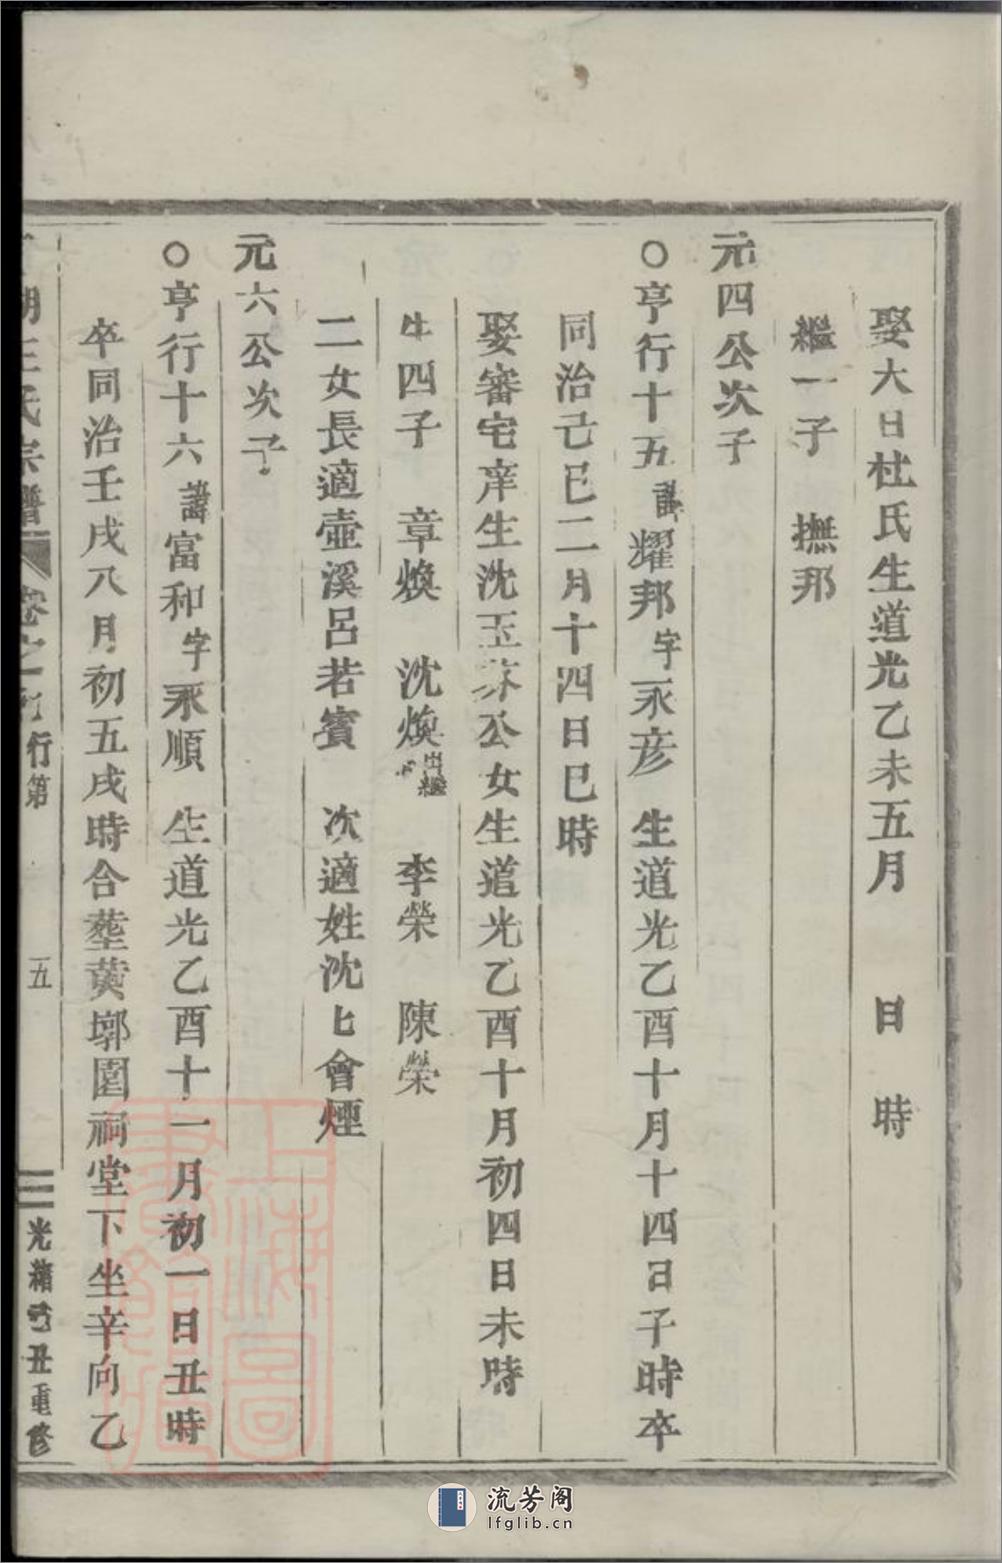 娶大日杜氏生道光乙未五月 日 時
繼一子 撫邦
元四公次子
○亨行十五諱耀邦字永彦 生道光乙酉十月十四日子時卒
同治己巳二月十四日巳時
娶審宅庠生沈玉芬公女生道光乙酉十月初四日未時
生四子 章煥 沈煥出繼 李榮 陳榮
二女長適壺溪呂若賓 次適姓沈匕會煙
元六公次子
○亨行十六諱富和字永順 生道光乙酉十一月初一日丑時
卒同治壬戌八月初五戌時合塟黄墎園祠堂下坐辛向乙
湖王氏宗譜 卷之 行第 五 光緒 丑重修
上海圖書館藏
流芳阁
lfglib.cn